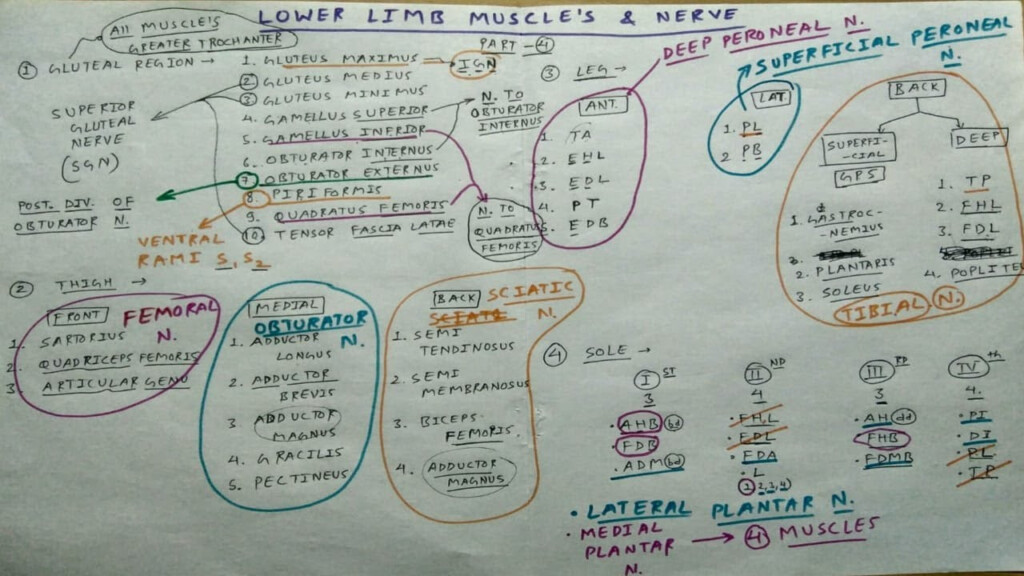 LOWER LIMB MUSCLE'S & NERVE
PART - 4
All MUSCLE'S
GREATER TROCHANTER
1 GLUTEAL REGION →
1. GLUTEUS MAXIMUS → IGN
2 GLUTEUS MEDIUS
3 GLUTEUS MINIMUS
4. GAMELLUS SUPERIOR
5. GAMELLUS INFRIOR
6. OBTURATOR INTERNUS
7 OBTURATOR EXTERNUS
8. PIRIFORMIS
9. QUADRATUS FEMORIS
10. TENSOR FASCIA LATAE
SUPERIOR
GLUTEAL
NERVE
(SGN)
POST. DIV. OF
OBTURATOR N.
VENTRAL
RAMI S1, S2
N. TO
OBTURATOR
INTERNUS
N. TO
QUADRATUS
FEMORIS
2 THIGH →
FRONT FEMORAL
N.
1. SARTORIUS
2. QUADRICEPS FEMORIS
3 ARTICULAR GENU
MEDIAL
OBTURATOR
N.
1. ADDUCTOR
LONGUS
2. ADDUCTOR
BREVIS
3 ADDUCTOR
MAGNUS
4. GRACILIS
5. PECTINEUS
BACK SCIATIC
N.
1. SEMI
TENDINOSUS
2. SEMI
MEMBRANOSUS
3. BICEPS
FEMORIS.
4. ADDUCTOR
MAGNUS
3 LEG →
DEEP PERONEAL N.
ANT.
1. TA
2. EHL
3. EDL
4. PT
5. EDB
SUPERFICIAL PERONEAL
N.
LAT
1. PL
2 PB
BACK
SUPERFI-
-CIAL
GPS
1. GASTROC-
-NEMIUS
2. PLANTARIS
3. SOLEUS
DEEP
1. TP
2. FHL
3. FDL
4. POPLITE
TIBIAL N.
4 SOLE →
I ST
3
. AHB bd
FDB
. ADM bd
II ND
4
. FHL
. FDL
. FDA
. L
1 2, 3, 4
III RD
3
. AH add
FHB
. FDMB
IV th
4.
. PI
. DI
. PL
. TP
. LATERAL PLANTAR N.
. MEDIAL
PLANTAR → 4 MUSCLES
N.